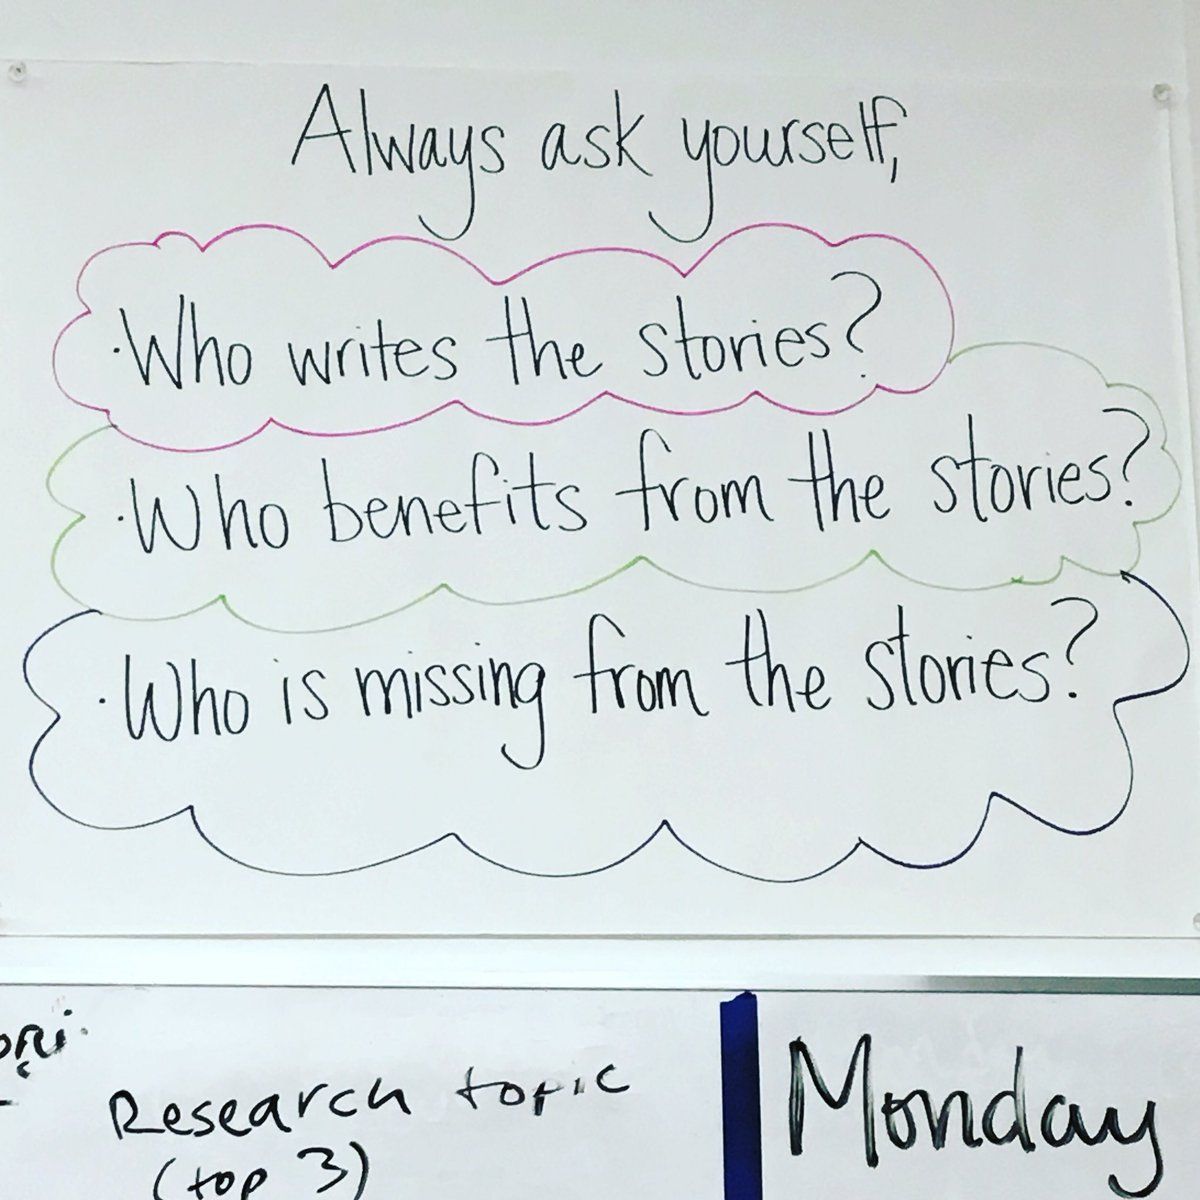 Always ask yourself,
·Who writes the stories?
·Who benefits from the stories?
·Who is missing from the stories?
Research topic
(top 3)
Monday